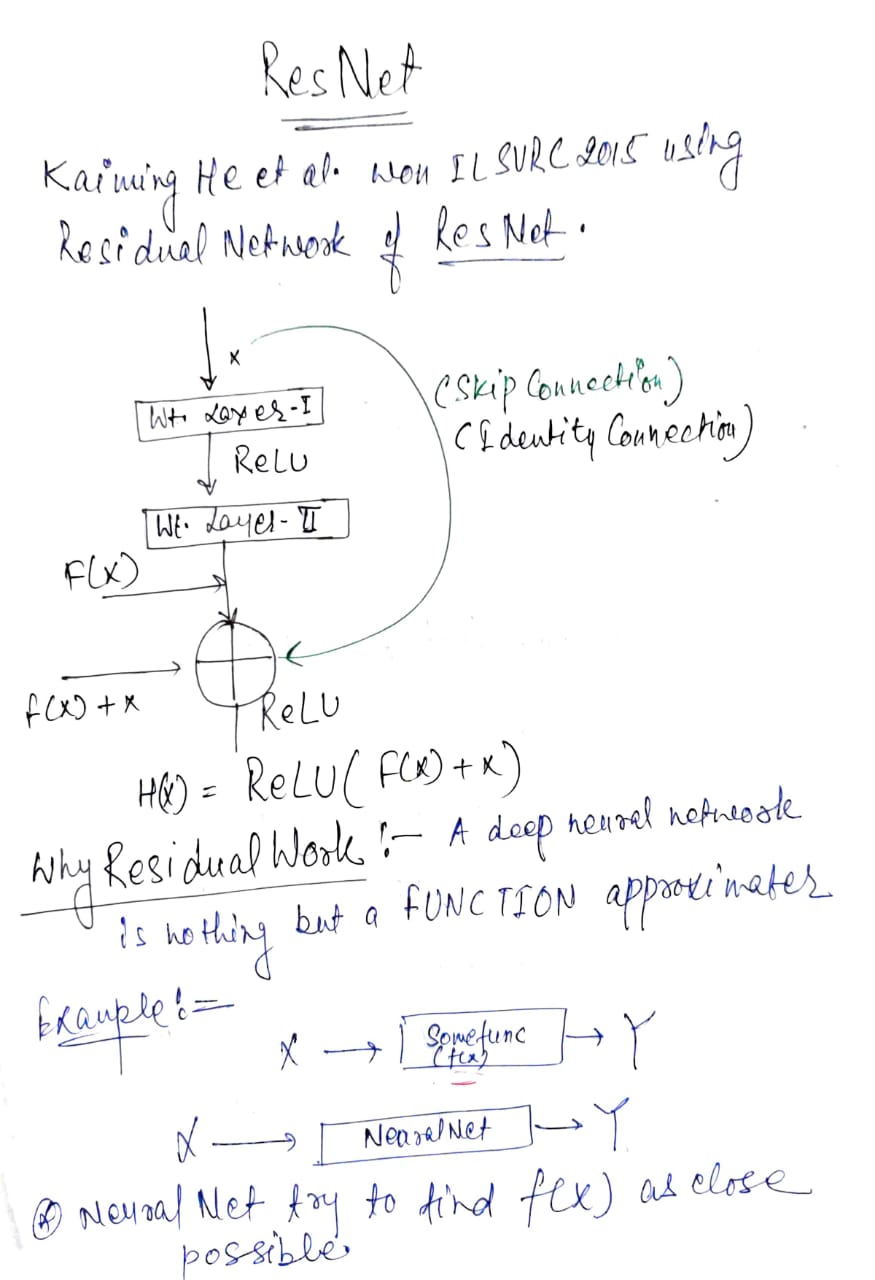 ResNet
Kaiming He et al. won ILSVRC 2015 using
Residual Network of ResNet.
x
(Skip Connection)
(Identity Connection)
Wt. Layer-I
ReLU
Wt. Layer-II
F(x)
f(x) + x
ReLU
H(x) = ReLU( F(x) + x)
Why Residual Work :- A deep neural network
is nothing but a FUNCTION approximater
Example :=
X → Somefunc → Y
(f(x))
X → Neural Net → Y
Neural Net try to find f(x) as close
possible.